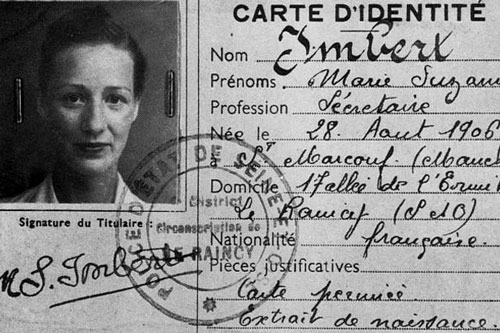 CARTE D'IDENTITÉ
Nom Imbert
Prénoms Marie Suzan
Profession Sécretaire
Née le 28 Aout 1906
à St Marcouf (Manch
Domicile 17 allée de l'Ermi
Le Raincy (S&O)
Nationalité française
Pièces justificatives
Carte permisé
Extrait de naissance
Signature du Titulaire :
M S. Imbert
D'ETAT DE SEINE
District
Circonscription de
LE RAINCY